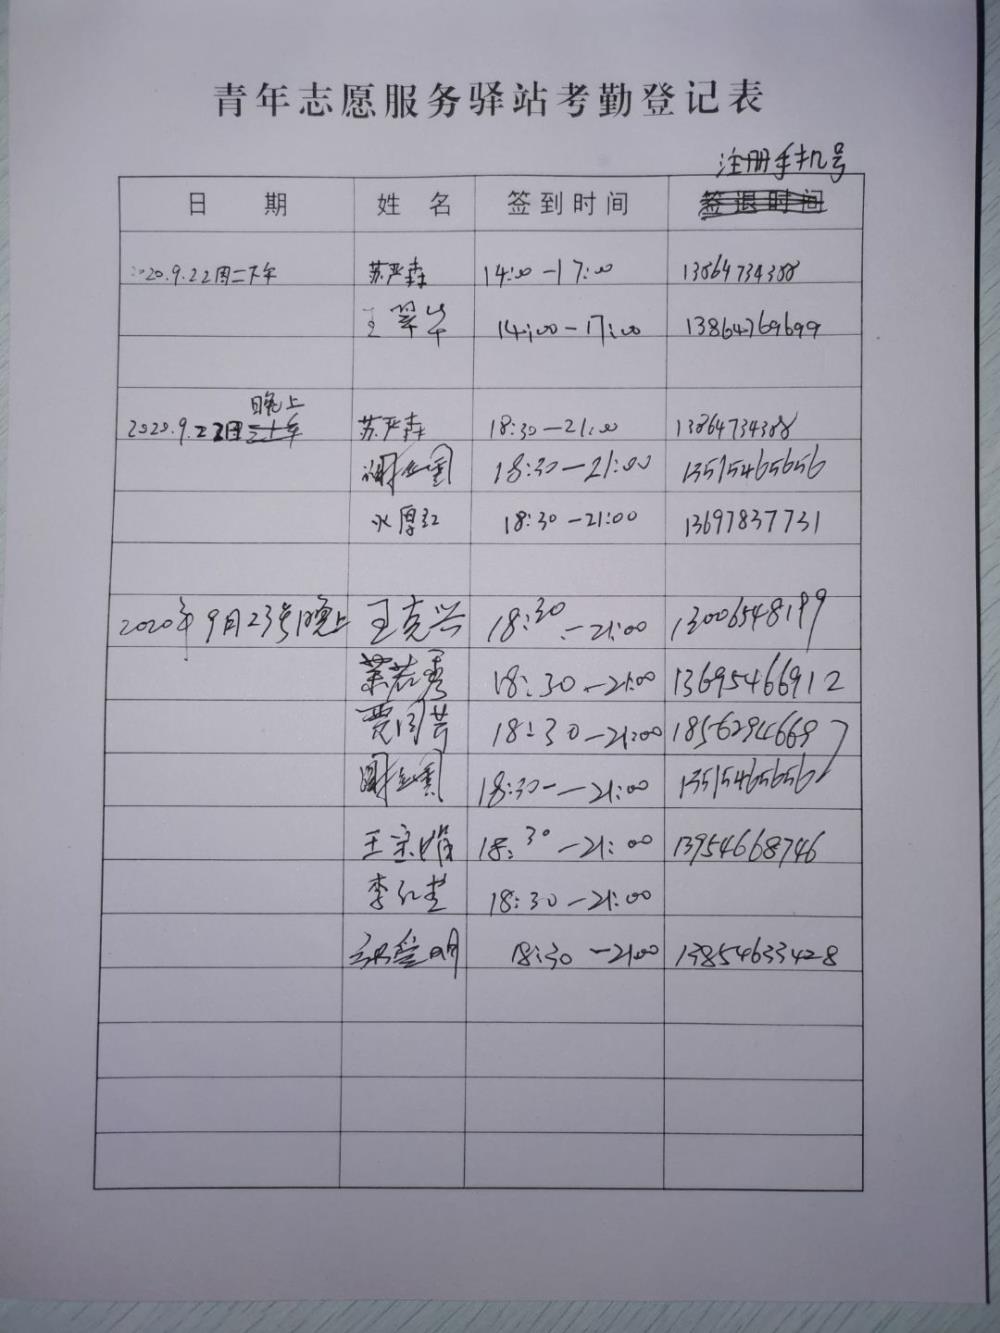 青年志愿服务驿站考勤登记表
注册手机号
日 期 姓 名 签到时间 签退时间
2020.9.22周二下午 苏严森 14:00-17:00 13864734388
王翠华 14:00-17:00 13864769699
晚上
2020.9.22周二 苏严森 18:30-21:00 13864734388
18:30-21:00 13515465656
18:30-21:00 13697837731
2020年9月23号晚上 王克兴 18:30-21:00 13006548199
18:30-21:00 13695466912
18:30-21:00 1856294669
18:30-21:00 13515465656
18:30-21:00 13954668746
18:30-21:00
18:30-21:00 13854633428